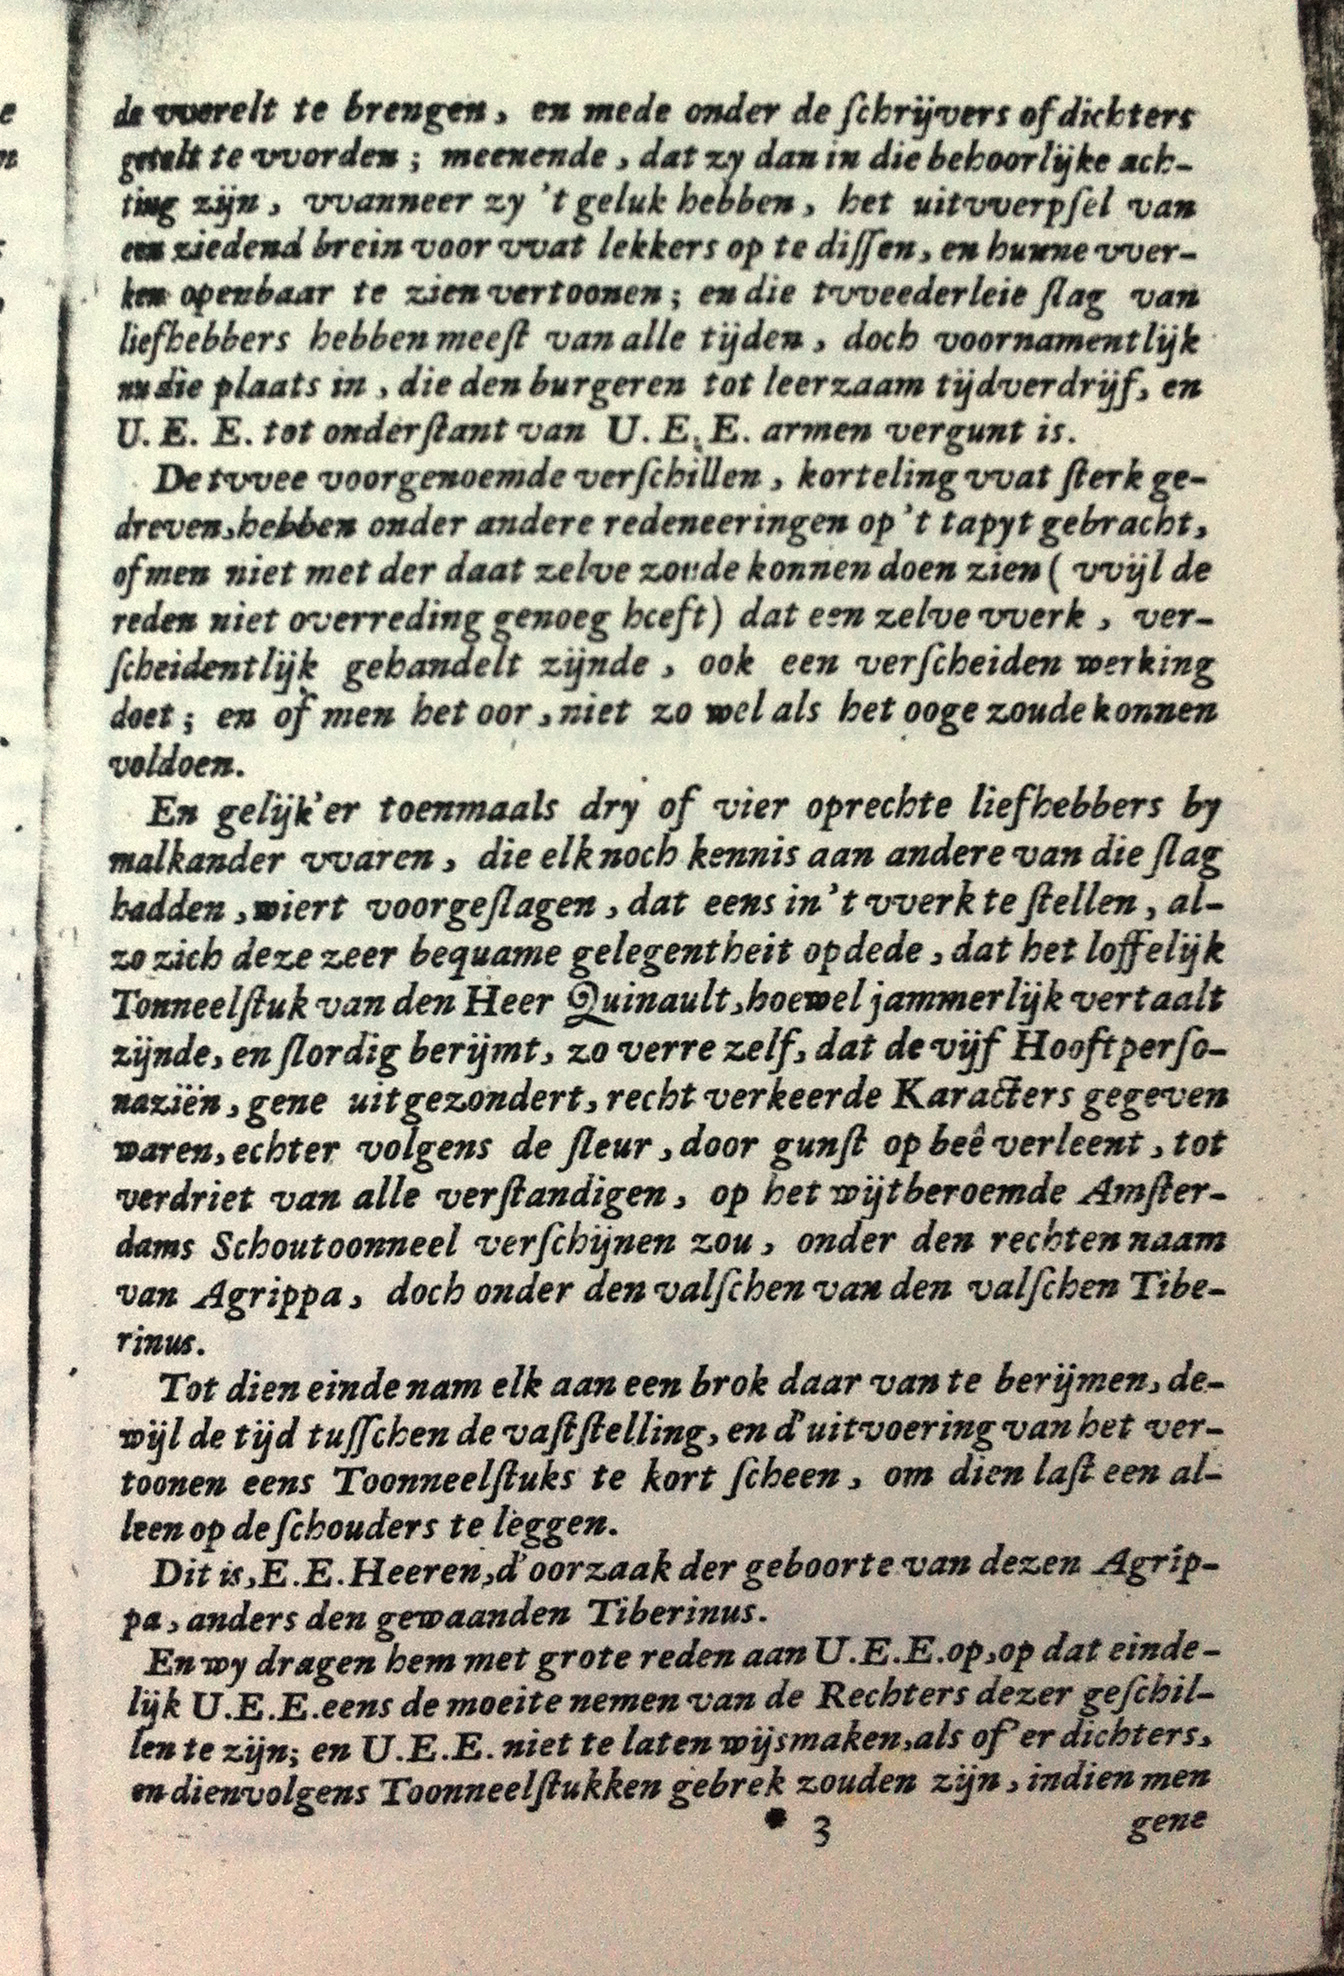 de vverelt te brengen, en mede onder de ſchrijvers of dichters
getalt te vvorden; meenende, dat zy dan in die behoorlijke ach-
ting zijn, vvanneer zy 't geluk hebben, het uitvverpſel van
een ziedend brein voor vvat lekkers op te diſſen, en hunne vver-
ken openbaar te zien vertoonen; en die tvveederleie ſlag van
liefhebbers hebben meeſt van alle tijden, doch voornamentlijk
nu die plaats in, die den burgeren tot leerzaam tijdverdrijf, en
U. E. E. tot onderſtant van U. E. E. armen vergunt is.
De tvvee voorgenoemde verſchillen, korteling vvat ſterk ge-
dreven, hebben onder andere redeneeringen op 't tapyt gebracht,
of men niet met der daat zelve zoude konnen doen zien ( vvijl de
reden niet overreding genoeg heeft) dat een zelve vverk, ver-
ſcheidentlijk gehandelt zijnde, ook een verſcheiden werking
doet; en of men het oor, niet zo wel als het ooge zoude konnen
voldoen.
En gelijk'er toenmaals dry of vier oprechte liefhebbers by
malkander vvaren, die elk noch kennis aan andere van die ſlag
hadden, wiert voorgeſlagen, dat eens in 't vverk te ſtellen, al-
zo zich deze zeer bequame gelegentheit opdede, dat het loffelijk
Tonneelſtuk van den Heer Quinault, hoewel jammerlijk vertaalt
zijnde, en ſlordig berijmt, zo verre zelf, dat de vijf Hooftperſo-
naziën, gene uitgezondert, recht verkeerde Karacters gegeven
waren, echter volgens de ſleur, door gunſt op beê verleent, tot
verdriet van alle verſtandigen, op het wijtberoemde Amſter-
dams Schoutoonneel verſchijnen zou, onder den rechten naam
van Agrippa, doch onder den valſchen van den valſchen Tibe-
rinus.
Tot dien einde nam elk aan een brok daar van te berijmen, de-
wijl de tijd tuſſchen de vaſtſtelling, en d'uitvoering van het ver-
toonen eens Toonneelſtuks te kort ſcheen, om dien laſt een al-
leen op de ſchouders te leggen.
Dit is, E. E. Heeren, d'oorzaak der geboorte van dezen Agrip-
pa, anders den gewaanden Tiberinus.
En wy dragen hem met grote reden aan U.E.E. op, op dat einde-
lijk U.E.E. eens de moeite nemen van de Rechters dezer geſchil-
len te zijn; en U.E.E. niet te laten wijsmaken, als of 'er dichters,
en dienvolgens Toonneelſtukken gebrek zouden zijn, indien men
* 3 gene